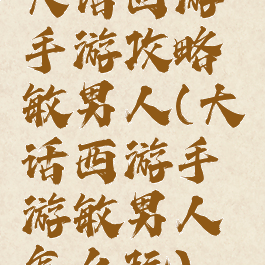 大话西游
手游攻略
敏男人(大
话西游手
游敏男人
怎么玩)